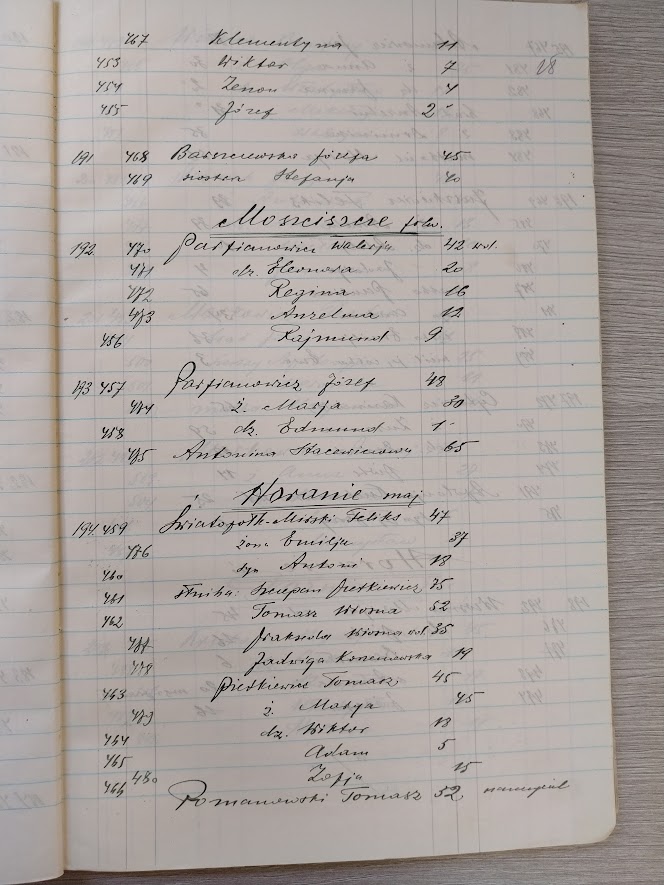 467 Klementyna 11
453 Wiktor 7 28
454 Zenon 4
455 Józef 2
191 468 Barszczewska Józefa 45
469 siostra Stefanja 40
Moszciszcze folw.
192 470 Parfianowicz Walerja 42 wd.
471 dz. Eleonora 20
472 Regina 16
473 Anzelma 12
456 Rajmund 9
193 457 Parfianowicz Józef 48
474 ż. Marja 30
458 dz. Edmund 1
475 Antonina Stacewiczowa 65
Horanie maj.
194 459 Światopołk-Mirski Feliks 47
476 żona Emilja 37
460 syn Antoni 18
461 służba: Szczepan Pietkiewicz 75
462 Tomasz 52
477 Prakseda wd. 35
478 Jadwiga 19
463 Pietkiewicz Tomasz 45
479 ż. Marya 45
464 dz. Wiktor 13
465 Adam 5
480 Zofja 15
466 Romanowski Tomasz 52 nauczyciel